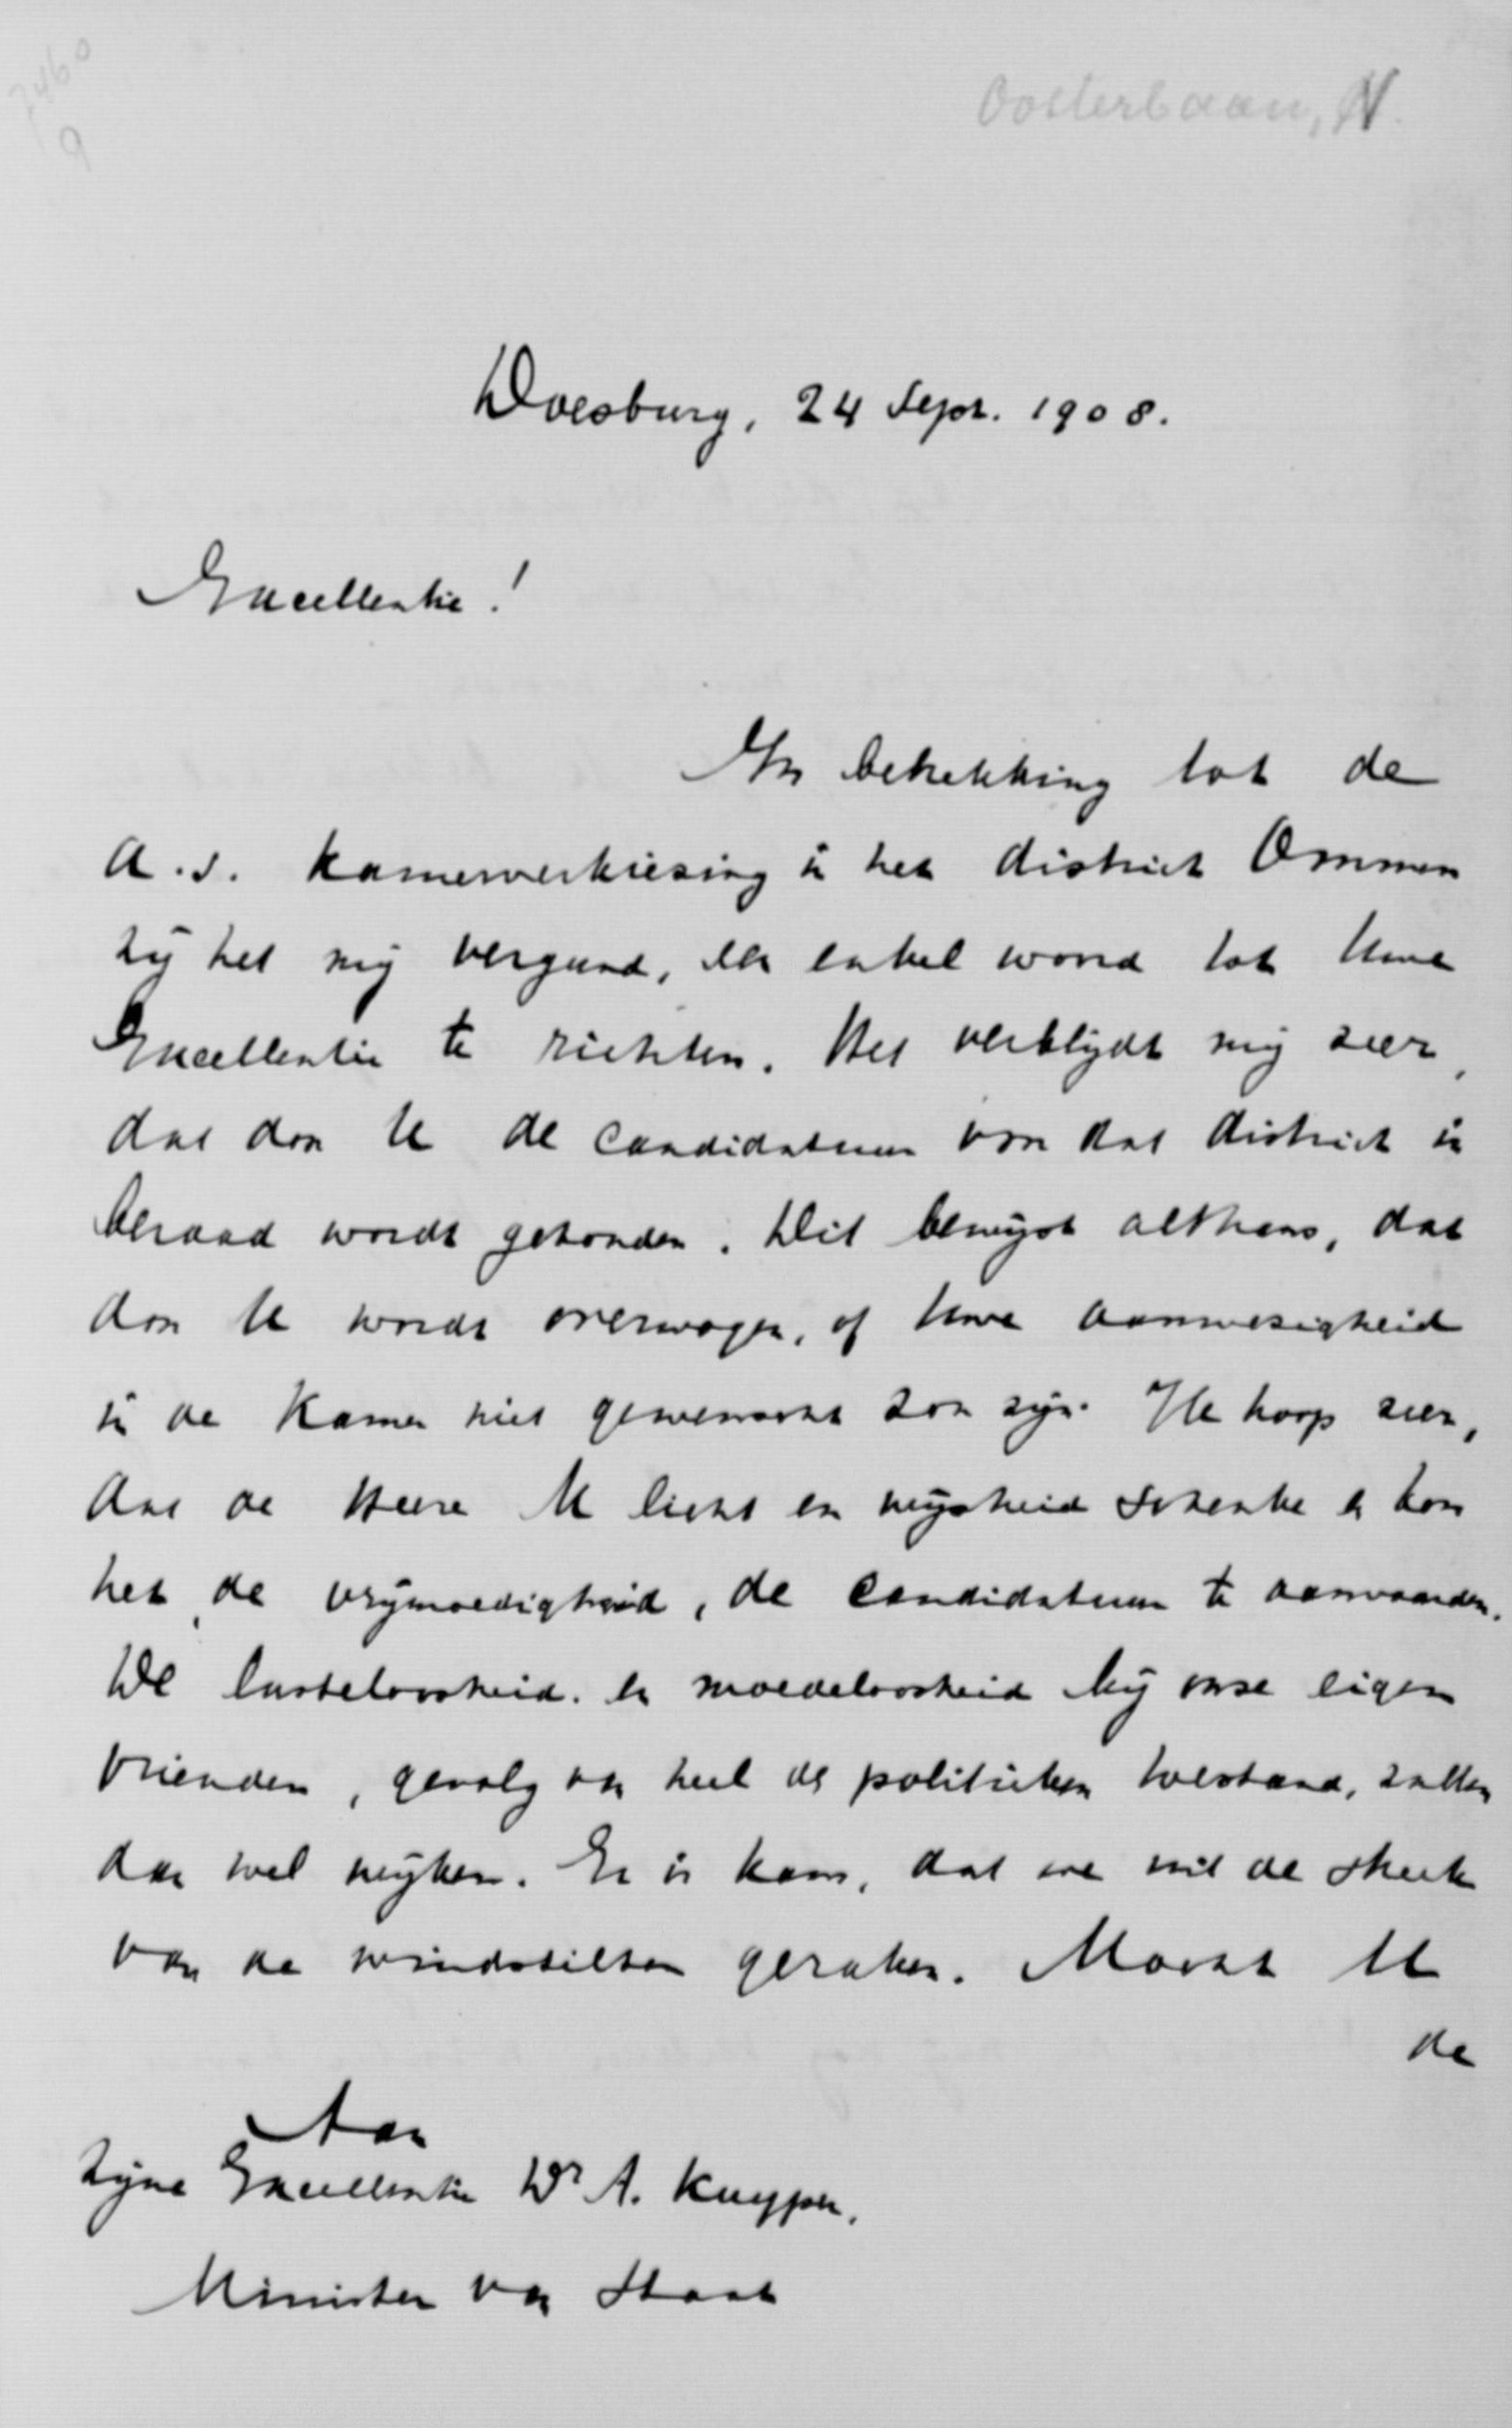 7460
9
Oosterbaan, N.
Doesburg, 24 Sept. 1908.
Excellentie!
In betrekking tot de
a.s. Kamerverkiezing in het district Ommen
zij het mij vergund, een enkel woord tot Uwe
Excellentie te richten. Het verblijdt mij zeer,
dat door U de candidatuur voor dat district in
beraad wordt gehouden. Dit bewijst althans, dat
door U wordt overwogen, of Uwe aanwezigheid
in de Kamer niet gewenscht zou zijn. Ik hoop zeer,
dat de Heere U licht en wijsheid schenke en kan
het, de vrijmoedigheid, de candidatuur te aanvaarden.
De lusteloosheid en moedeloosheid bij onze eigen
vrienden, gevolg van heel de politieken toestand, zullen
dan wel wijken. Er is kans, dat we uit de streek
van de windstilten geraken. Mocht U
de
Aan
Zijne Excellentie Dr A. Kuyper,
Minister van Staat